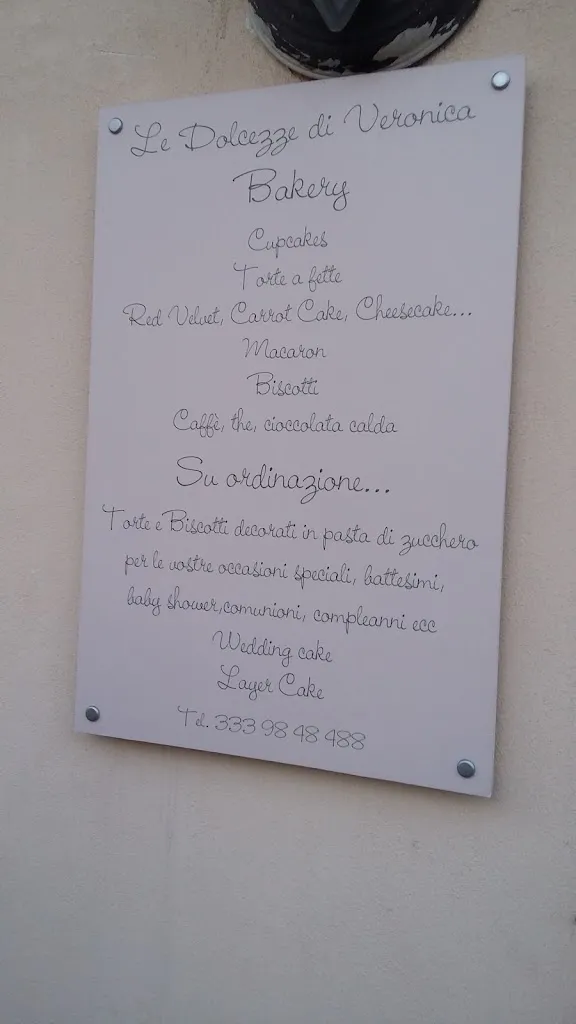 Le Dolcezze di Veronica
Bakery
Cupcakes
Torte a fette
Red Velvet, Carrot Cake, Cheesecake...
Macaron
Biscotti
Caffè, the, cioccolata calda
Su ordinazione...
Torte e Biscotti decorati in pasta di zucchero
per le vostre occasioni speciali, battesimi,
baby shower,comunioni, compleanni ecc
Wedding cake
Layer Cake
Tel. 333 98 48 488